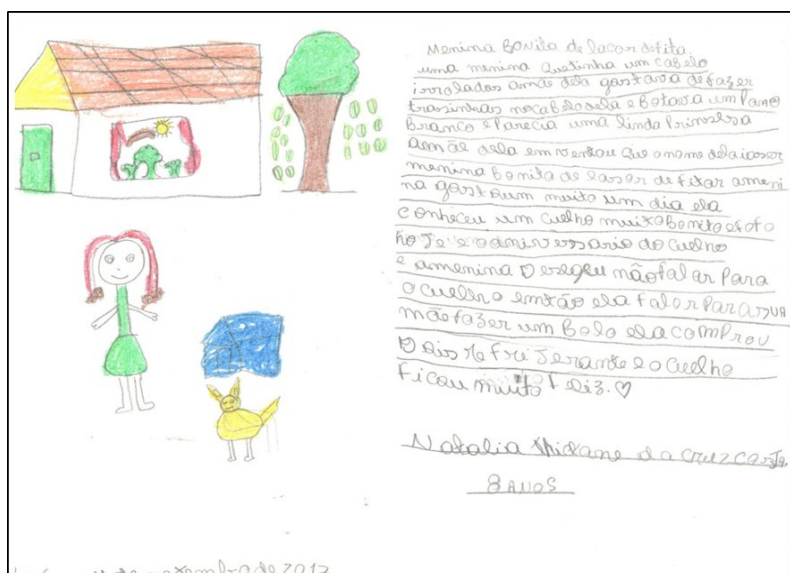 Menina Bonita de lacor defita
uma menina Quetinha um cabelo
inrolados amãe dela gostava defazer
transinhas nocabelodela e Botava um Pano
Branco e Parecia uma linda Princesa
amãe dela emventou Que onome delaiaser
menina Bonita de laser de fitar ameni
na gostoum muito um dia ela
conheceu um cuelho muito Bonito e fofo
ho Teve o aniverssario do cuelho
e amenina não falar Para
o cuelho emtão ela falor Para sua
mãe fazer um Bolo ela comprou
Dois Refrejerante e o cuelho
Ficou muito feliz. ♡
Natalia da cruz
8 ANOS
de 2017